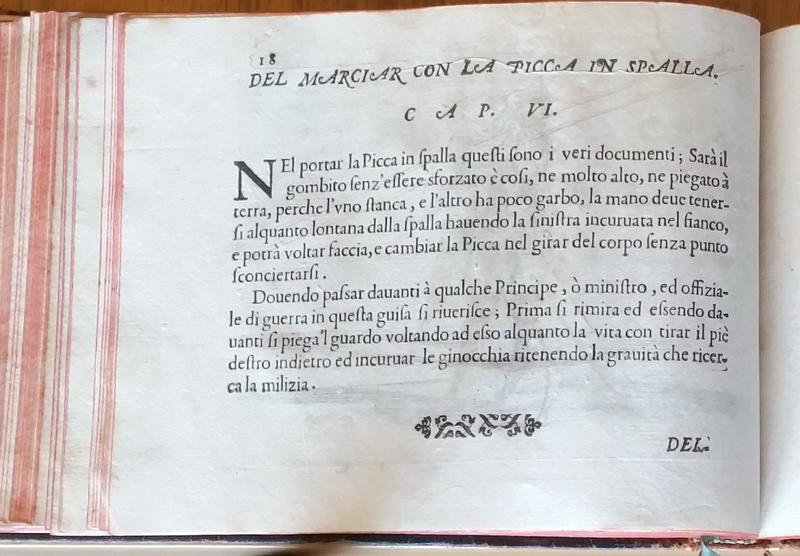 18
DEL MARCIAR CON LA PICCA IN SPALLA.
CAP. VI.
NEl portar la Picca in ſpalla queſti ſono i veri documenti; Sarà il
gombito ſenz'eſſere sforzato è coſi, ne molto alto, ne piegato à
terra, perche l'vno ſtanca, e l'altro ha poco garbo, la mano deue tener-
ſi alquanto lontana dalla ſpalla hauendo la ſiniſtra incuruata nel fianco,
e potrà voltar faccia, e cambiar la Picca nel girar del corpo ſenza punto
ſconciertarſi.
Douendo paſsar dauanti à qualche Principe, ò miniſtro, ed offizia-
le di guerra in queſta guiſa ſi riueriſce; Prima ſi rimira ed eſsendo da-
uanti ſi piega'l guardo voltando ad eſso alquanto la vita con tirar il piè
deſtro indietro ed incuruar le ginocchia ritenendo la grauità che ricer-
ca la milizia.
DEL